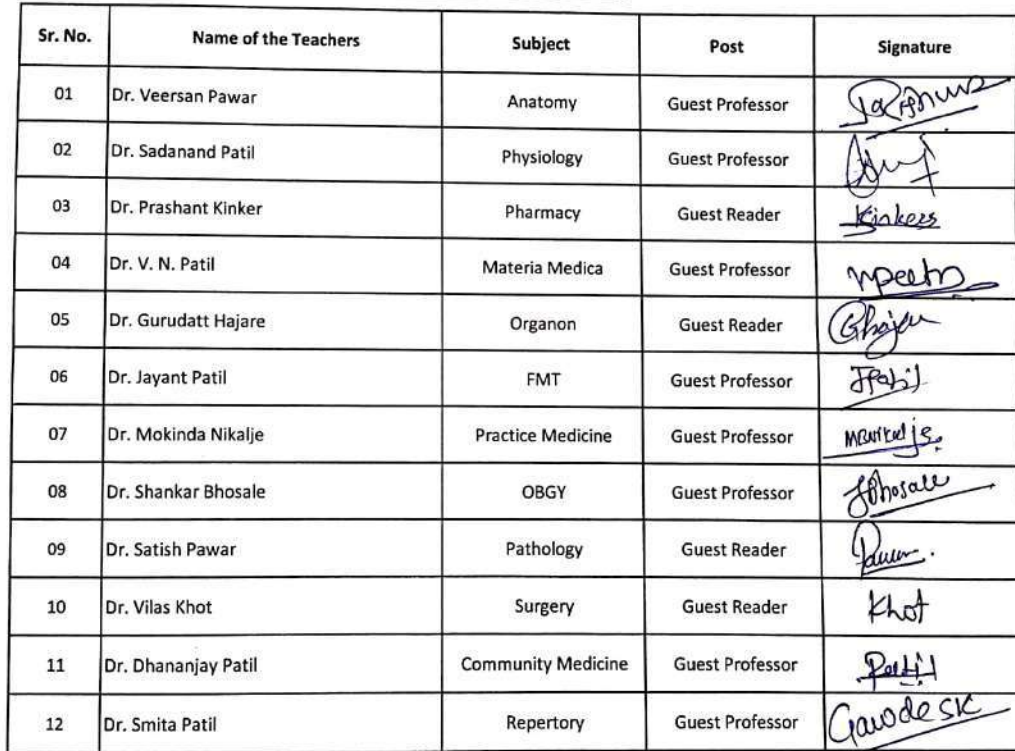 Sr. No. Name of the Teachers Subject Post Signature
01 Dr. Veersan Pawar Anatomy Guest Professor
02 Dr. Sadanand Patil Physiology Guest Professor
03 Dr. Prashant Kinker Pharmacy Guest Reader Kinkers
04 Dr. V. N. Patil Materia Medica Guest Professor
05 Dr. Gurudatt Hajare Organon Guest Reader
06 Dr. Jayant Patil FMT Guest Professor JPatil
07 Dr. Mokinda Nikalje Practice Medicine Guest Professor
08 Dr. Shankar Bhosale OBGY Guest Professor SBhosale
09 Dr. Satish Pawar Pathology Guest Reader
10 Dr. Vilas Khot Surgery Guest Reader Khot
11 Dr. Dhananjay Patil Community Medicine Guest Professor Patil
12 Dr. Smita Patil Repertory Guest Professor GawodeSK